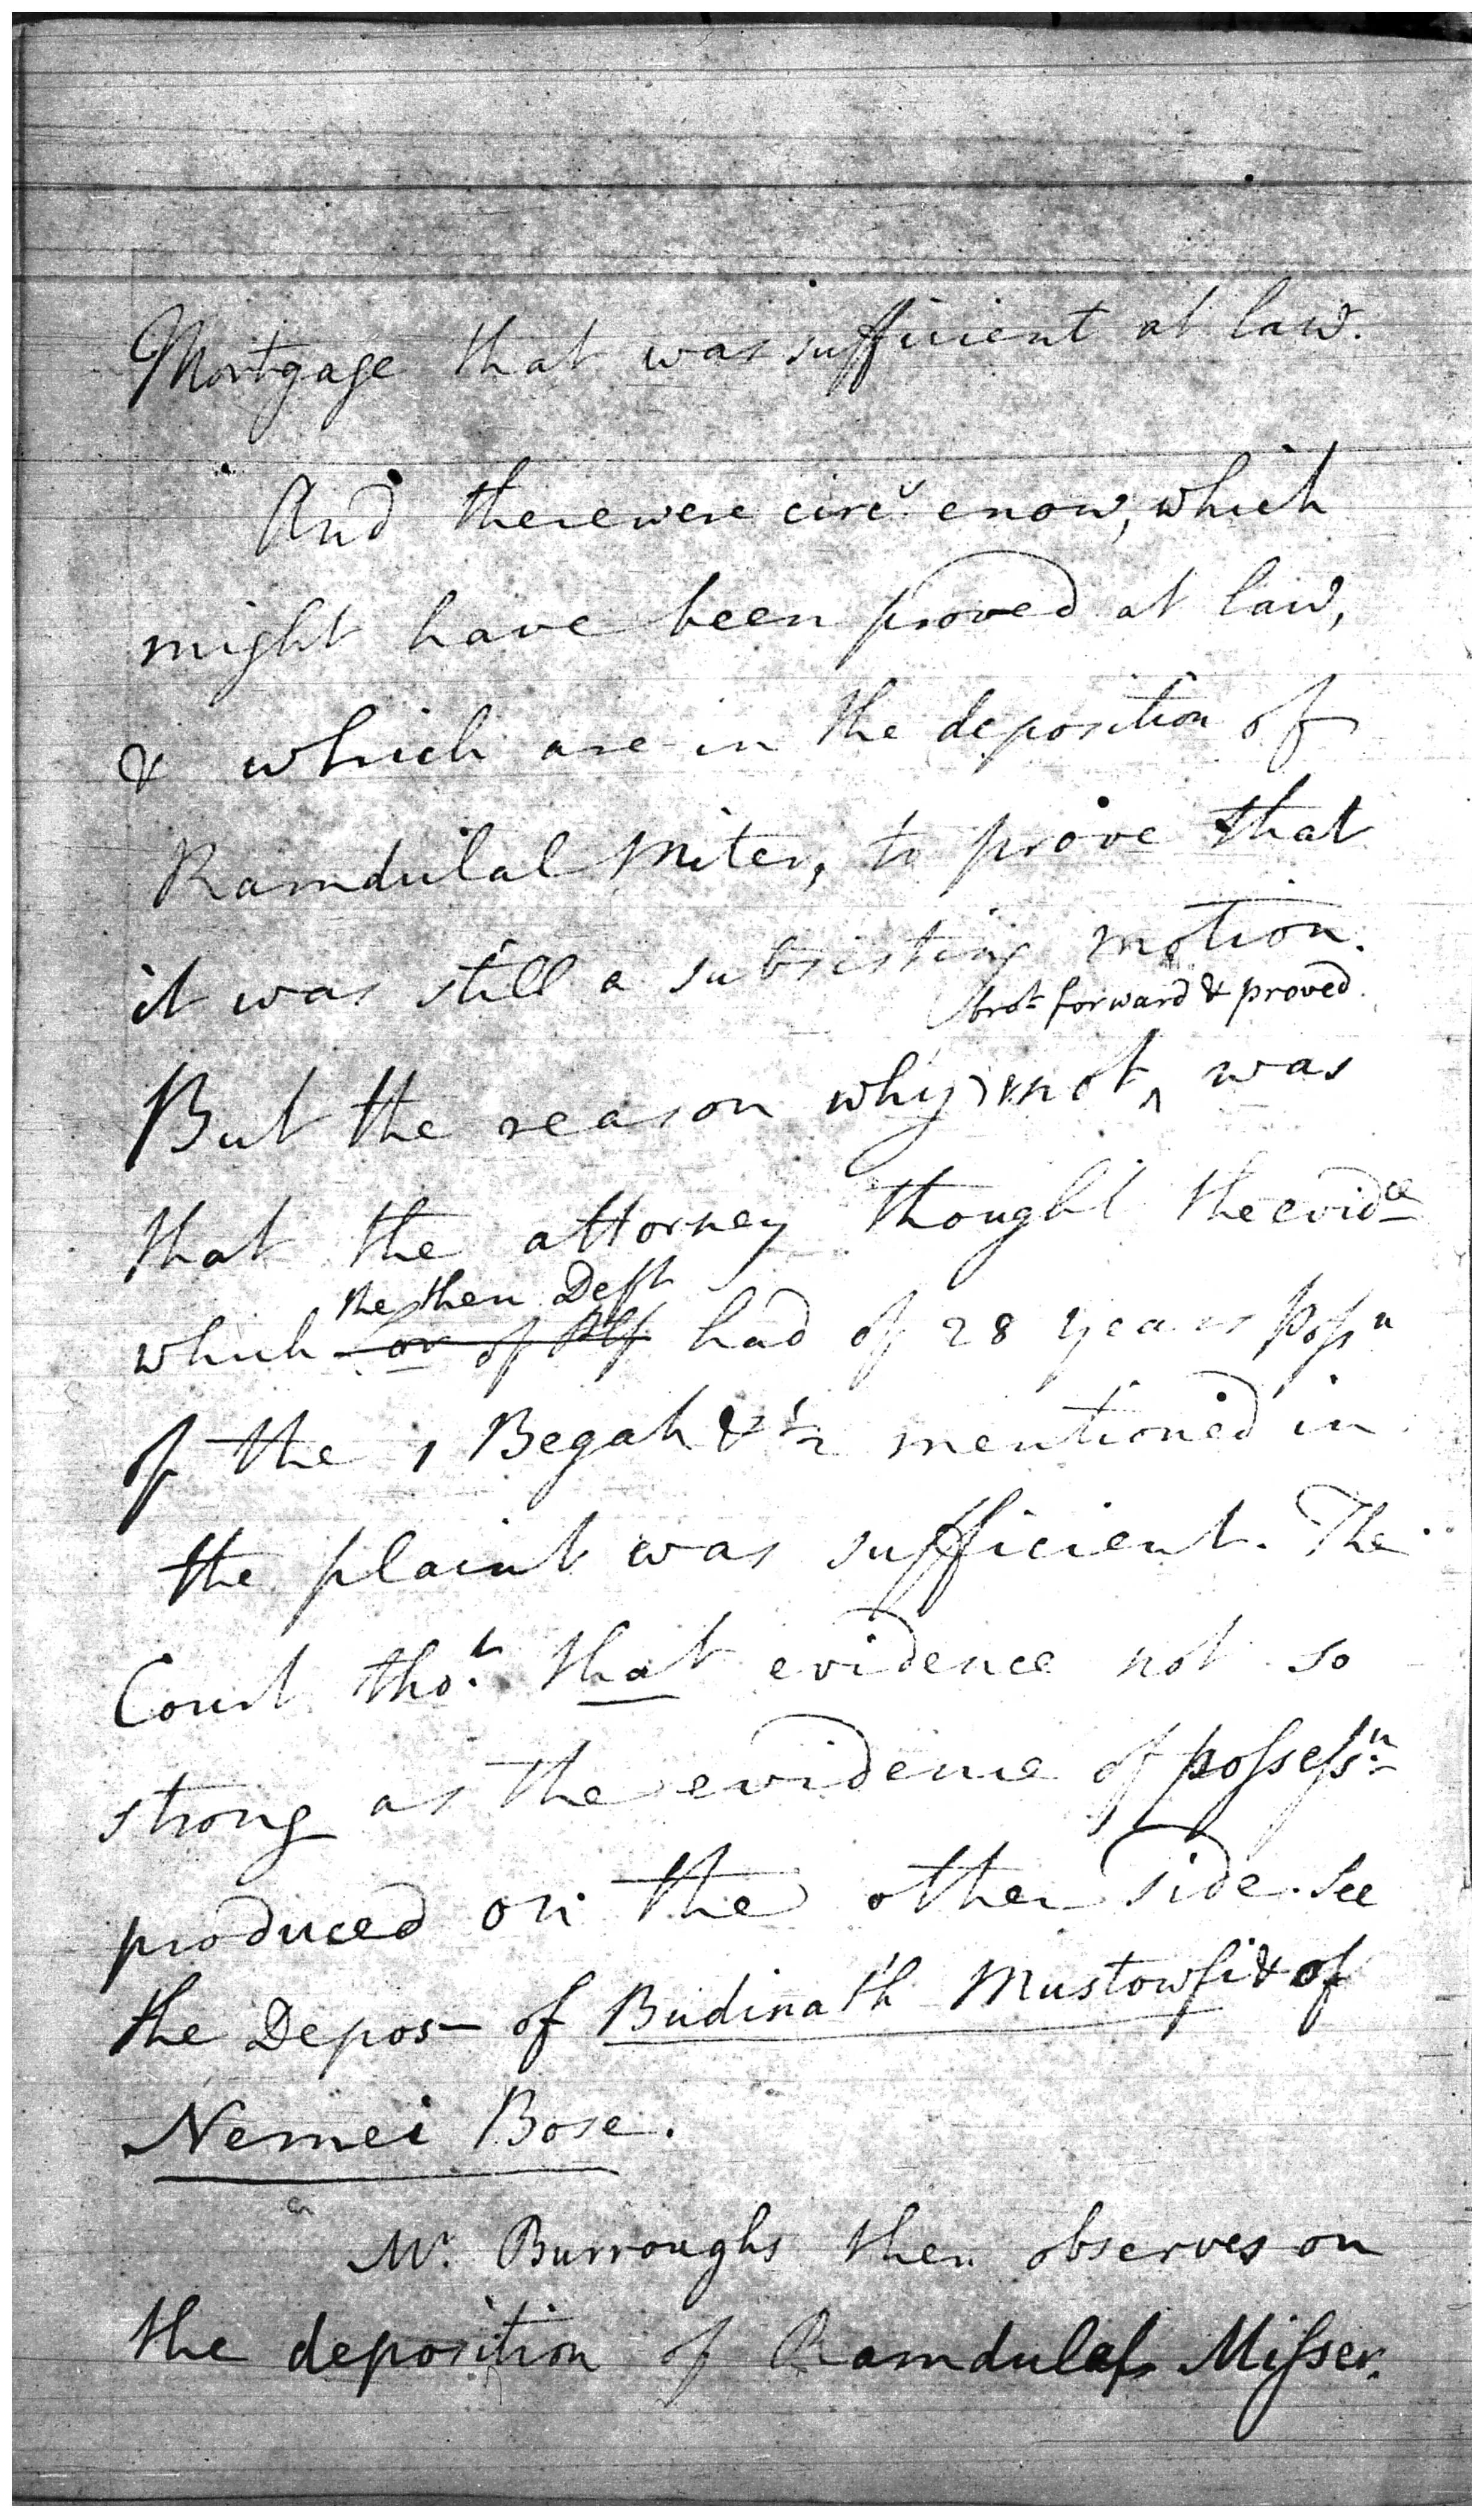 Mortgage that was sufficient at law.
And there were circs. enow, which
might have been proved at law,
& which are in the deposition of
Ramdulal Miter, to prove that
it was still a subsisting motion.
brot. forward & proved
But the reason why not ^ was
that the attorney thought the evidce
the then Deft
which had of 28 years Possn
of the 1 Begah & ½ mentioned in
the plaint was sufficient. The
Court thot. that evidence not so
strong as the evidence of possessn.
produced on the other side. See
the Depos- of Budinath Mustowfi & of
Nemei Bose.
Mr. Burroughs then observes on
the deposition of Misser.